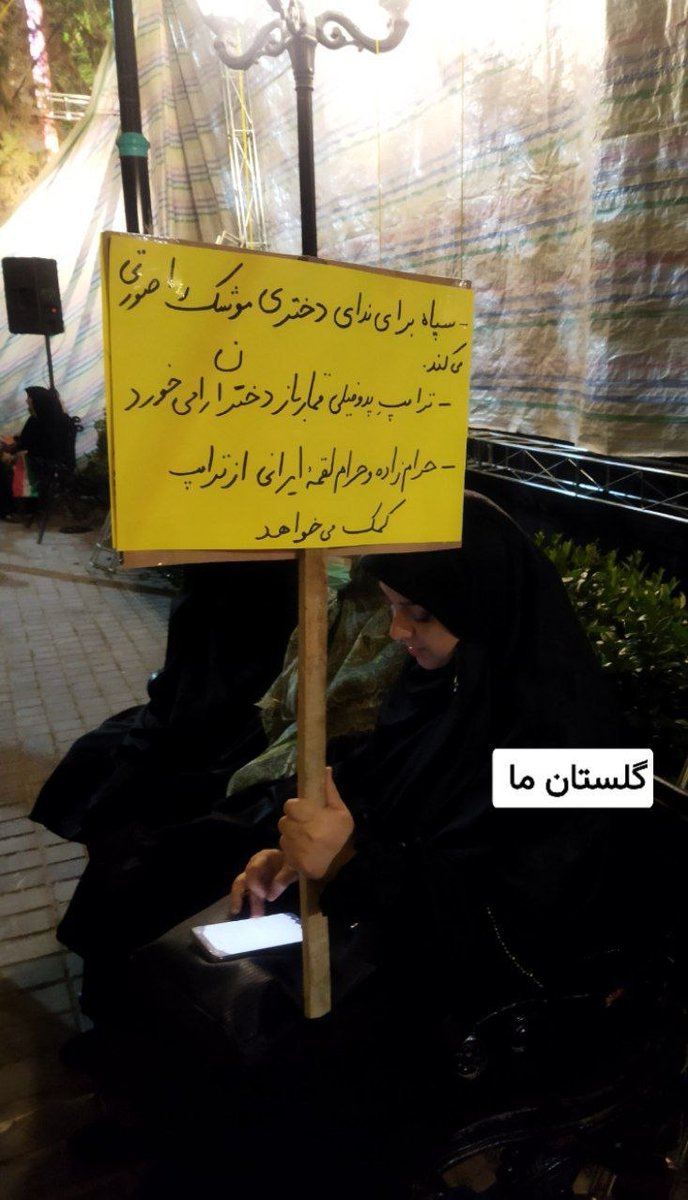 - سپاه برای ندای دختری موشک را صورتی
می کند.
- ترامپِ پدوفیلیِ قمارباز دختران را می خورد
- حرام زاده و حرام لقمهٔ ایرانی از ترامپ
کمک می خواهد
گلستان ما